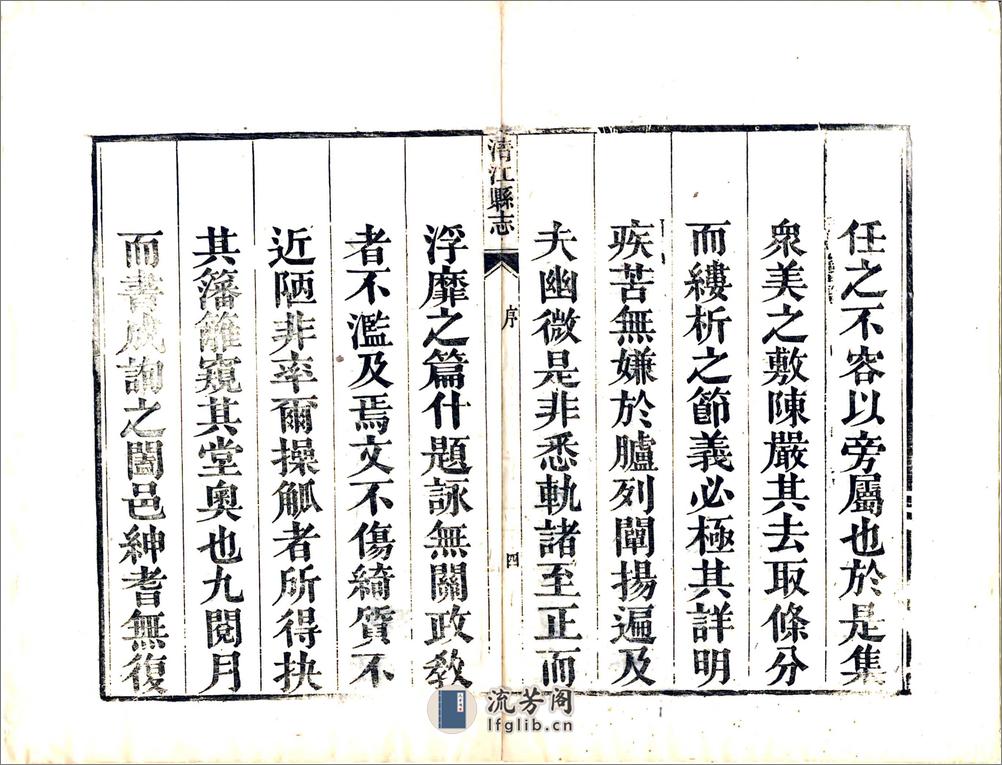 任之不容以旁屬也於是集
衆美之敷陳嚴其去取條分
而縷析之節義必極其詳明
疾苦無嫌於臚列闡揚遍及
夫幽微是非悉軌諸至正而
清江縣志
序
四
浮靡之篇什題詠無關政敎
者不濫及焉文不傷綺質不
近陋非率爾操觚者所得抉
其籓籬窺其堂奧也九閱月
而書成詢之闔邑紳耆無復
流芳阁
lfglib.cn